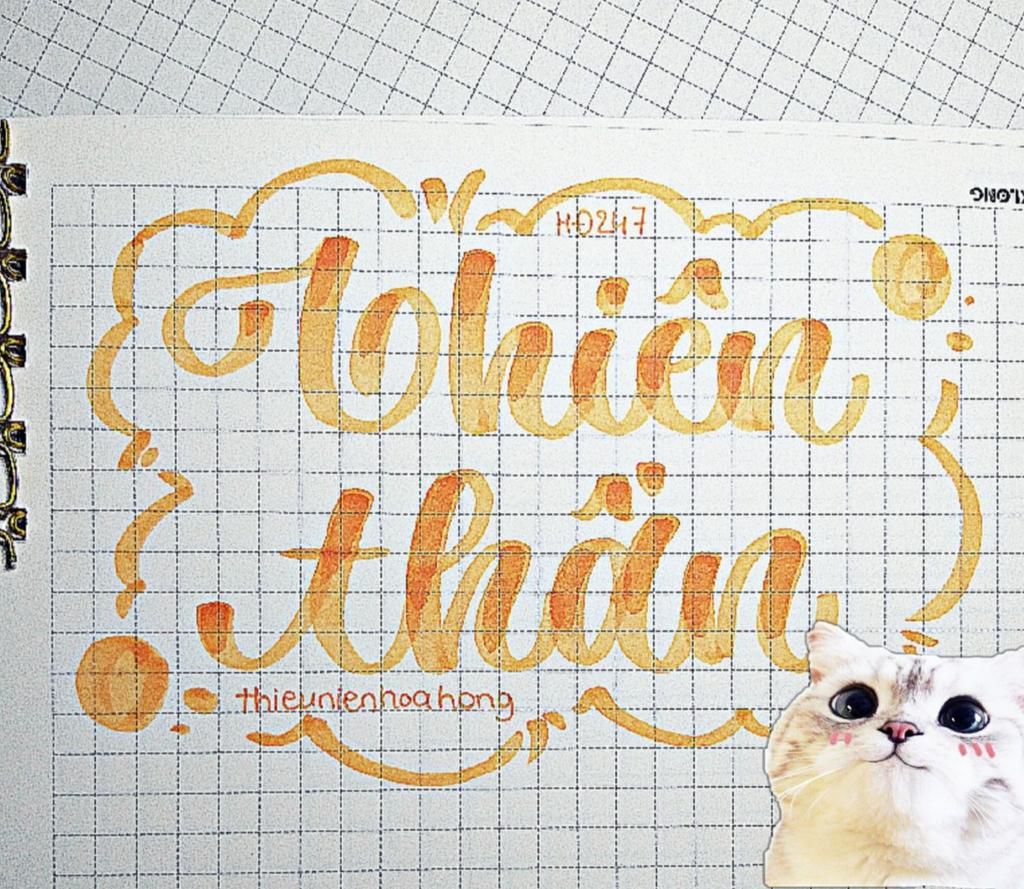 HD247
Thiên
thần
thieunienhoahong